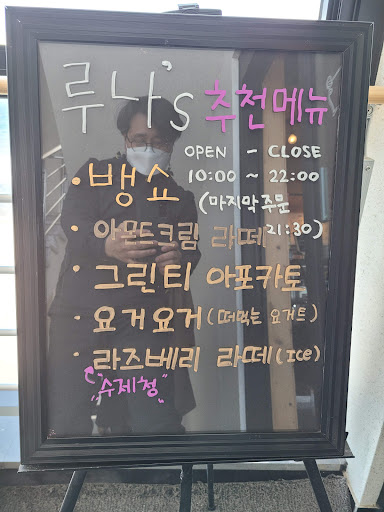 루나's 추천메뉴
OPEN - CLOSE
10:00 ~ 22:00
(마지막주문
21:30)
· 뱅쇼
· 아몬드크림 라떼
· 그린티 아포카토
· 요거요거 (떠먹는 요거트)
· 라즈베리 라떼 (Ice)
"수제청"